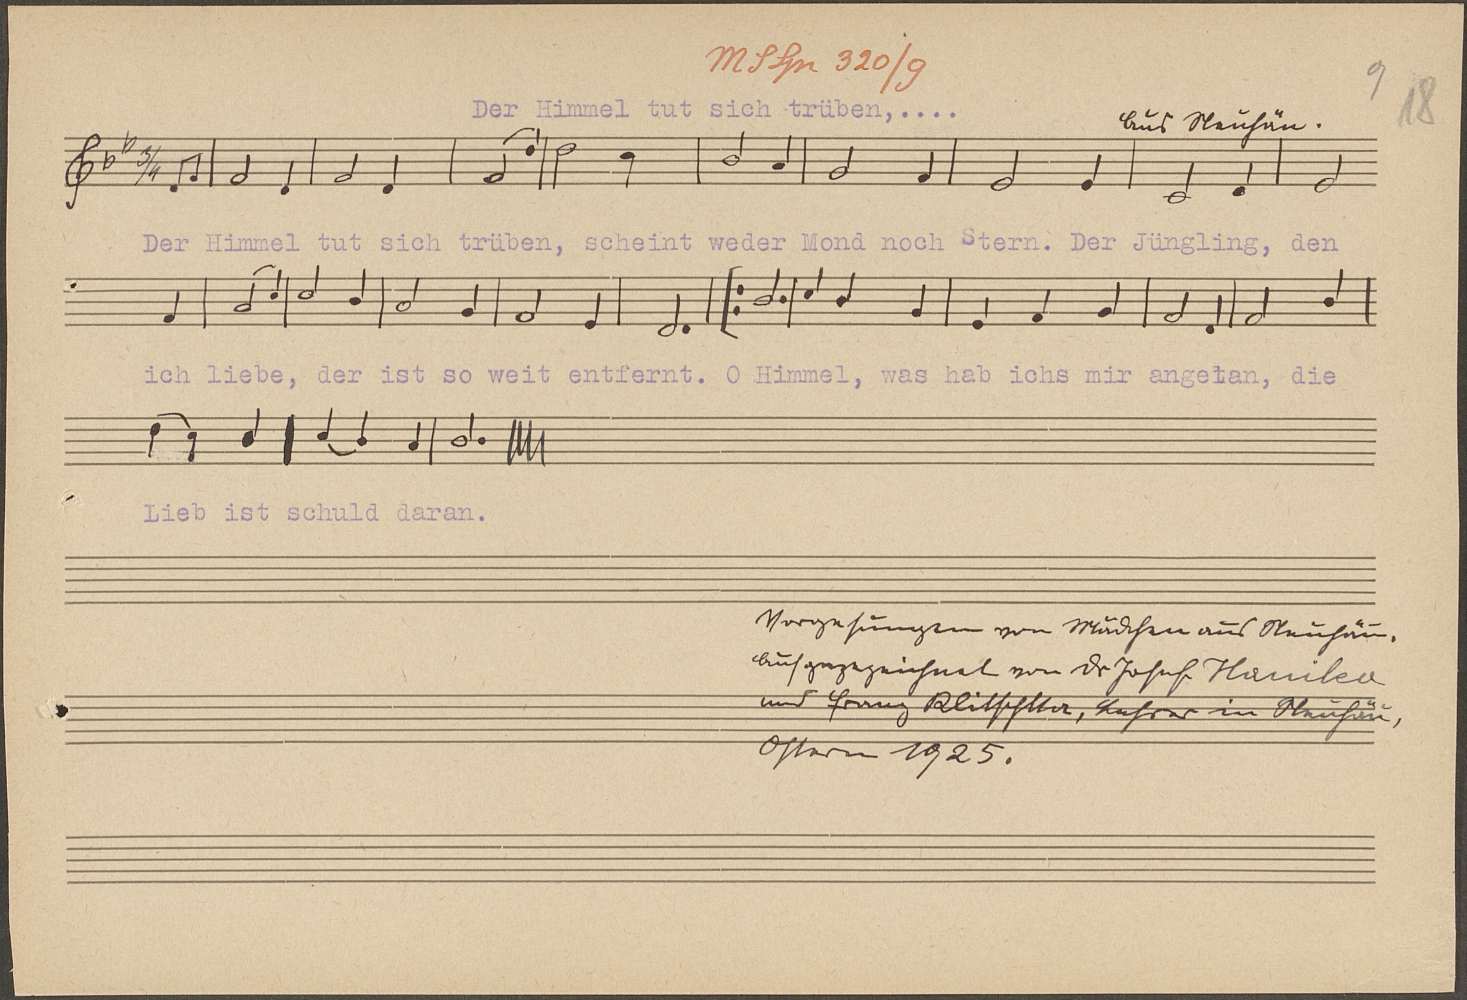 MS Spr 320/9
9
18
Der Himmel tut sich trüben,....
Aus Neuhäu.
3/4
Der Himmel tut sich trüben, scheint weder Mond noch Stern. Der Jüngling, den
ich liebe, der ist so weit entfernt. O Himmel, was hab ichs mir angetan, die
Lieb ist schuld daran.
Vorgesungen von Mädchen aus Neuhäu.
Aufgezeichnet von Dr Josef Hanika
und Franz Klitschka, Lehrer in Neuhäu,
Ostern 1925.